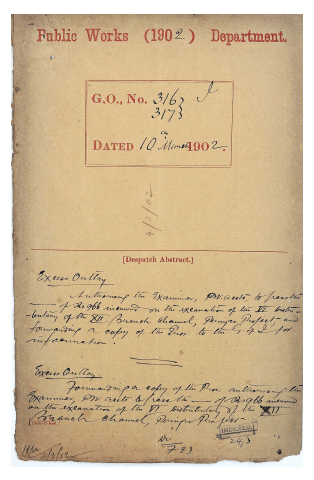 Public Works (1902) Department.
G.O., No. 316} I
317}
DATED 10th March 1902.
4/3/02
[Despatch Abstract.]
Excess Outlay
Authorising the Examiner, PW accts, to pass the
of Rs 966 incurred on the excavation of the VI Distri-
butary of the XII Branch Channel, Periyar Project and
forwarding a copy of the Pros. to the G I for
information.
Excess Outlay
Forwarding a copy of the Pros: authorising the
Examiner, PW accts to pass the of Rs 966 incurred
on the excavation of the VI Distributary of the XII
Branch Channel, Periyar Project.
INDEXED